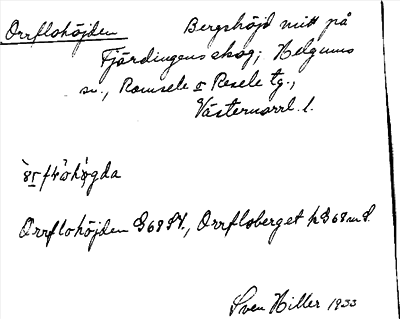 Orrflohöjden Bergshöjd mitt på
Fjärdingens skog; Helgums
sn., Ramsele o Resele tg.,
Västernorrl. l.
Orrflohöjden G68 SV., Orrfloberget
Sven Hiller 1933